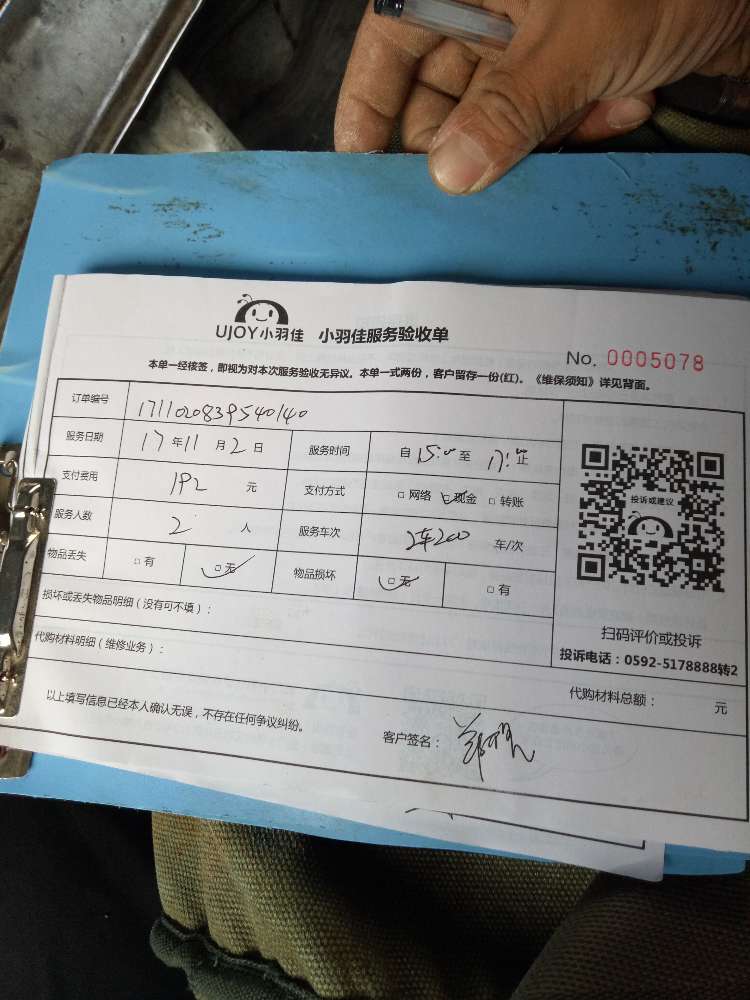 UJOY小羽佳 小羽佳服务验收单
No. 0005078
本单一经核签，即视为对本次服务验收无异议。本单一式两份，客户留存一份(红)。《维保须知》详见背面。
订单编号 1711020839540140
服务日期 17年11月2日 服务时间 自15:00至17:00止
支付费用 192元 支付方式 □网络 □现金 □转账
服务人数 2人 服务车次 2车200 车/次
物品丢失 □有 □无 物品损坏 □无 □有
投诉或建议
扫码评价或投诉
投诉电话：0592-5178888转2
损坏或丢失物品明细（没有可不填）：
代购材料明细（维修业务）：
代购材料总额： 元
以上填写信息已经本人确认无误，不存在任何争议纠纷。
客户签名：